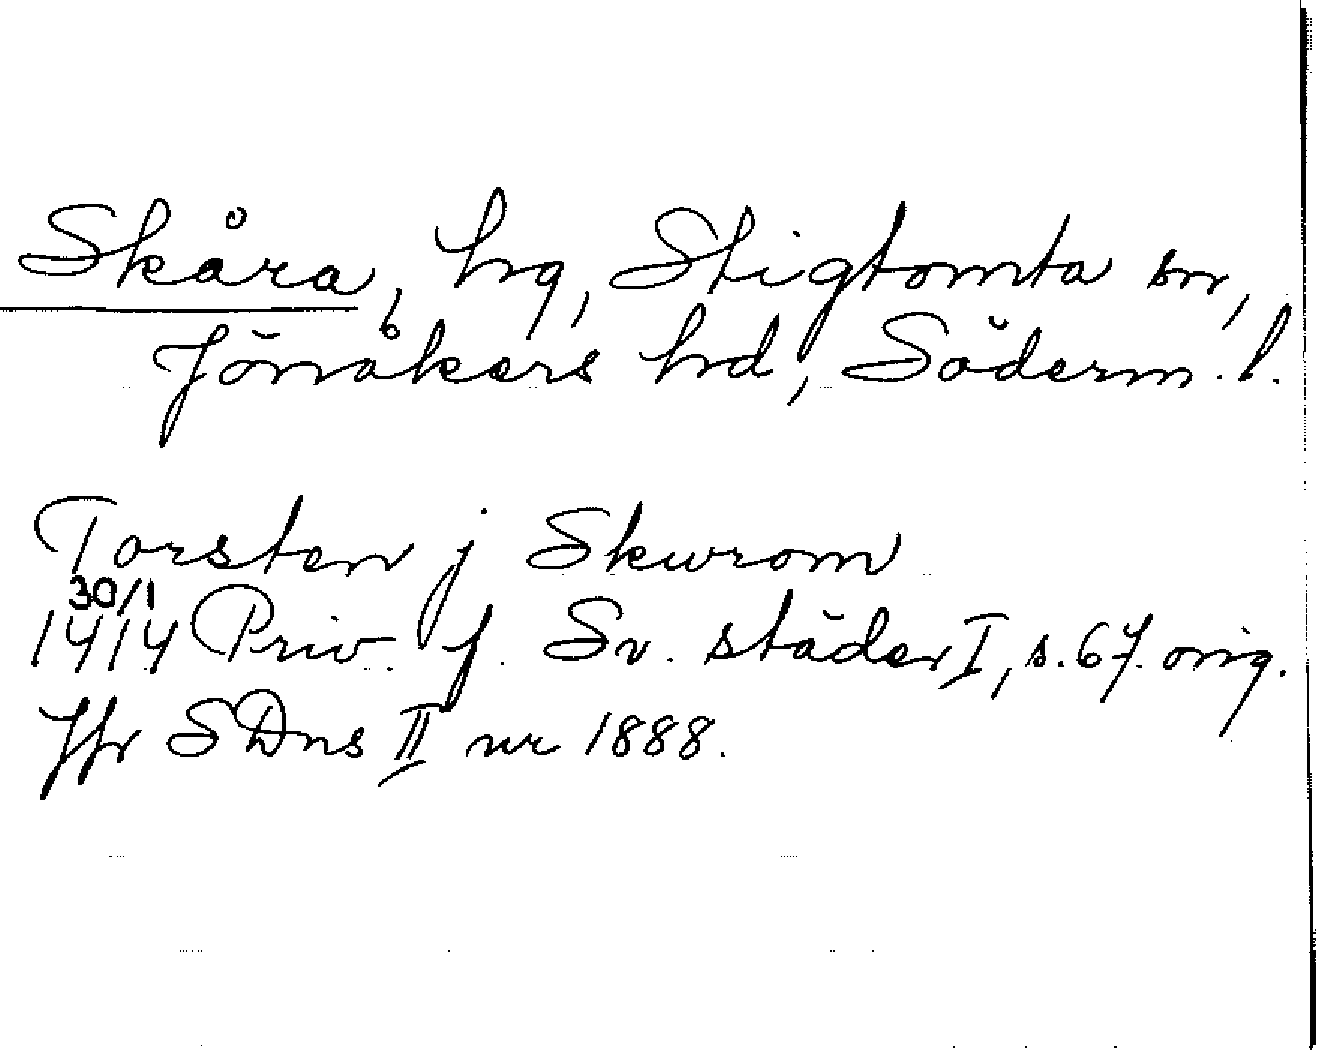 Skåra, hg, Stigtomta sn,
Jönåkers hd, Söderm. l.
Torsten j Skwrom
30/1
1414 Priv. f. Sv. städer I, s. 67. orig.
Jfr SDns II nr 1888.